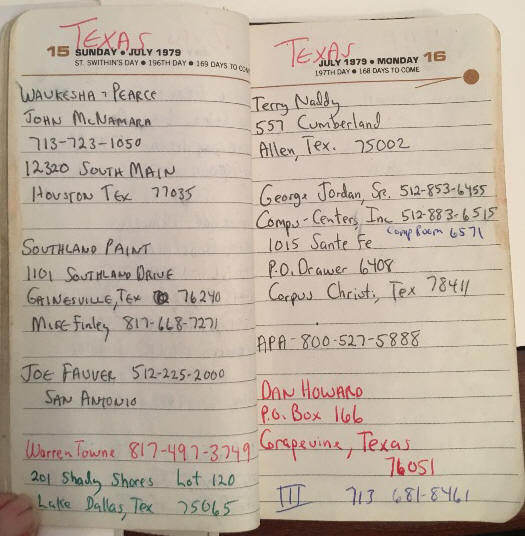 TEXAS
15 SUNDAY • JULY 1979
ST. SWITHIN'S DAY • 196TH DAY • 169 DAYS TO COM
WAUKESHA - PEARCE
JOHN MCNAMARA
713-723-1050
12320 SOUTH MAIN
HOUSTON TEX 77035
SOUTHLAND PAINT
1101 SOUTHLAND DRIVE
GAINESVILLE, TEX 76240
MIKE FINLEY 817-668-7271
JOE FAUVER 512-225-2000
SAN ANTONIO
Warren Towne 817-497-3749
201 Shady Shores Lot 120
Lake Dallas, Tex 75065
TEXAS
JULY 1979 • MONDAY 16
197TH DAY • 168 DAYS TO COME
Terry Naddy
557 Cumberland
Allen, Tex. 75002
George Jordan, Sr. 512-853-6455
Compu-Centers, Inc 512-883-6515
Comp Room 6571
1015 Sante Fe
P.O. Drawer 6408
Corpus Christi, Tex 78411
APA - 800-527-5888
DAN HOWARD
P.O. Box 166
Grapevine, Texas
76051
III 713 681-8461